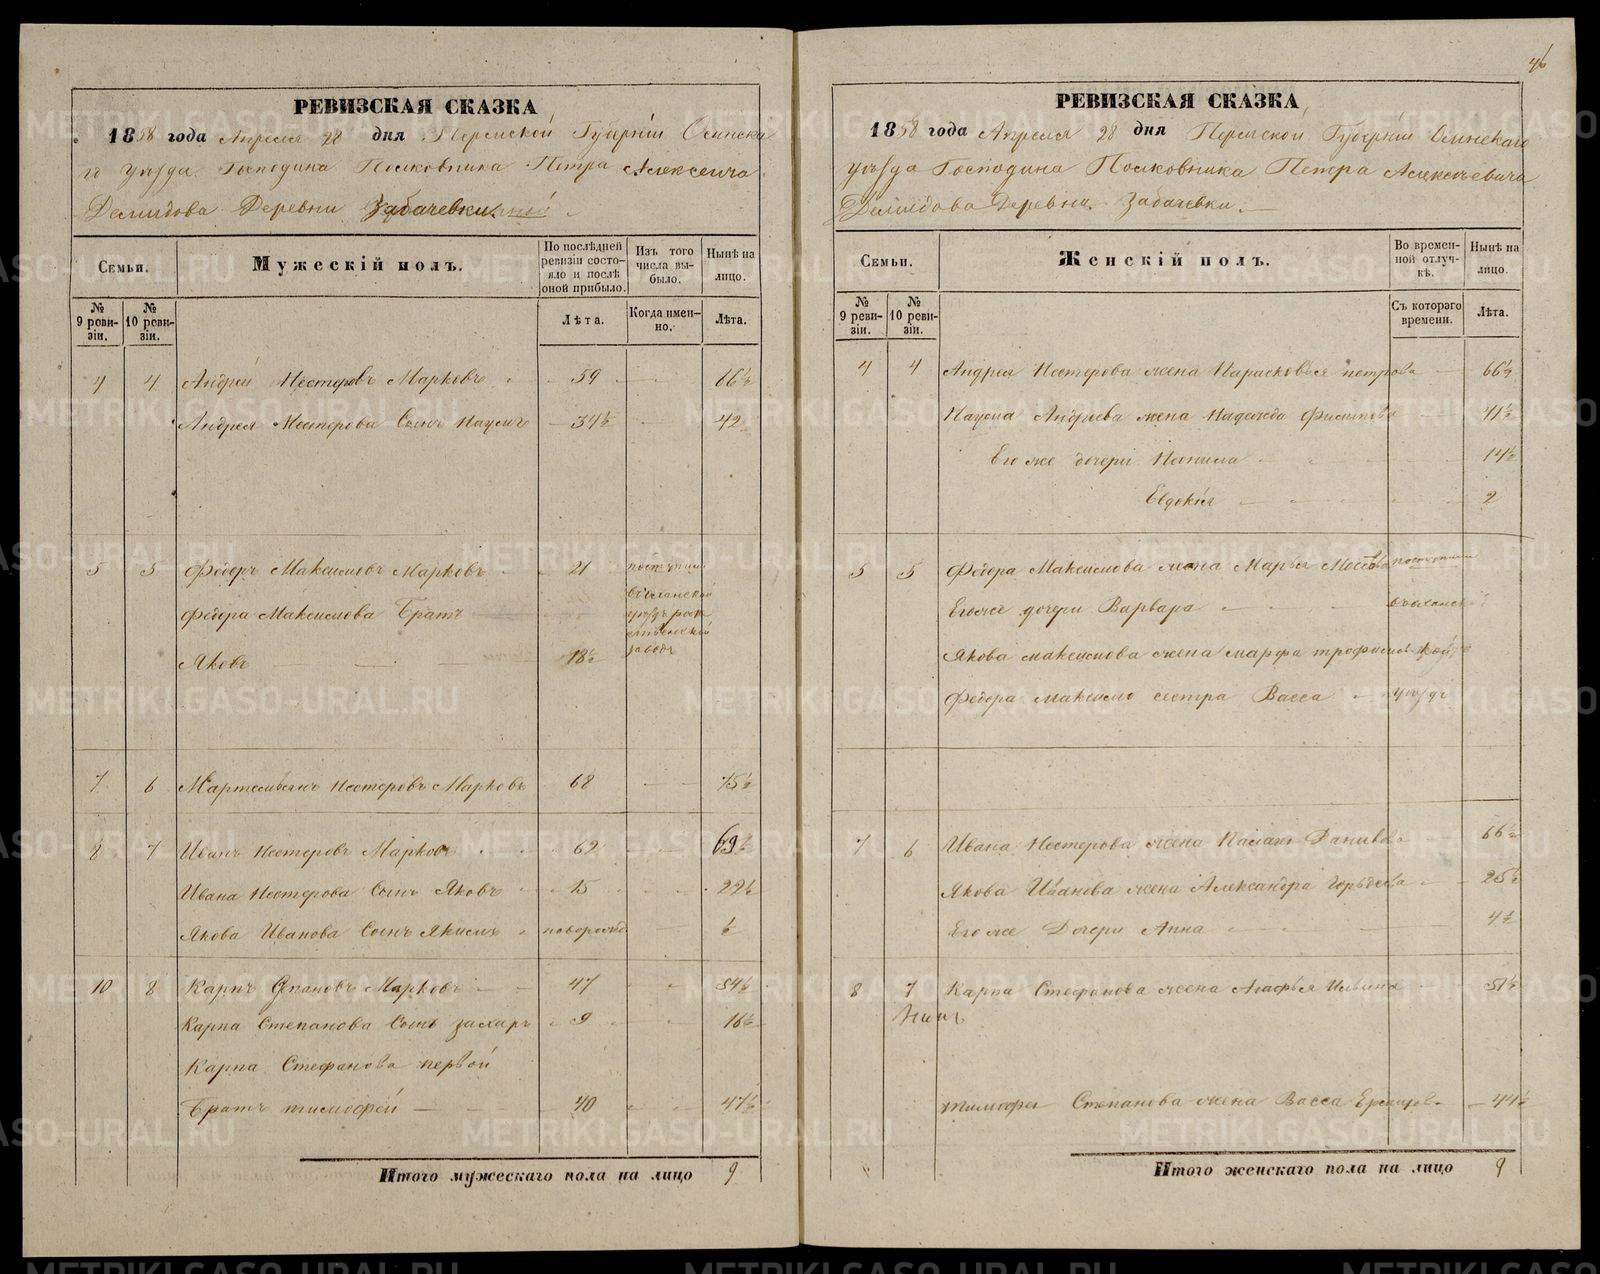 РЕВИЗСКАЯ СКАЗКА
1858 года Апреля 28 дня Пермской Губерніи Осинска
го уѣзда Господина Полковника Петра Алексеича
Демидова Деревни Забачевки
Семьи.
Мужескій полъ.
По послѣдней ревизіи состояло и послѣ оной прибыло.
Изъ того числа выбыло.
Нынѣ на лицо.
№ 9 ревизіи.
№ 10 ревизіи.
Лѣта.
Когда именно.
Лѣта.
4 4 Андрей Нестеровъ Марковъ 59 66½
Андрея Нестерова Сынъ Наумъ 34½ 42
5 5 Федоръ Максимовъ Марковъ 21
Федора Максимова Братъ
Яковъ 18½
заводъ
7 6 Нестеровъ Марковъ 68 75½
8 7 Иванъ Нестеровъ Марковъ 62 69½
Ивана Нестерова Сынъ Яковъ 15 22½
Якова Иванова Сынъ Якимъ новорожд ½
10 8 Карпъ Марковъ 47 54½
Карпа Степанова Сынъ Захаръ 9 16½
Карпа Стефанова первой
Братъ тимофей 40 47½
Итого мужескаго пола на лицо 9
46
РЕВИЗСКАЯ СКАЗКА
1858 года Апреля 28 дня Пермской Губерніи Осинскаго
уѣзда Господина Полковника Петра Алексѣевича
Демидова Деревни Забачевки.
Семьи.
Женскій полъ.
Во временной отлучкѣ.
Нынѣ на лицо.
№ 9 ревизіи.
№ 10 ревизіи.
Съ котораго времени.
Лѣта.
4 4 Андрея Нестерова жена Парасковья петрова 66½
Наума Андреева жена Надежда Филипова 41½
Его же дочери 14½
Евдокія 2
5 5 Федора Максимова жена Марья
Его же дочери Варвара
Якова максимова жена марфа
Федора сестра Васса уѣздъ
7 6 Ивана Нестерова жена 66½
Якова Иванова жена Александра 25½
Его же Дочери Анна 4½
8 7 Карпа Стефанова жена Агафья Ильина 51½
Степанова жена Васса 44½
Итого женскаго пола на лицо 9
METRIKI.GASO-URAL.RU